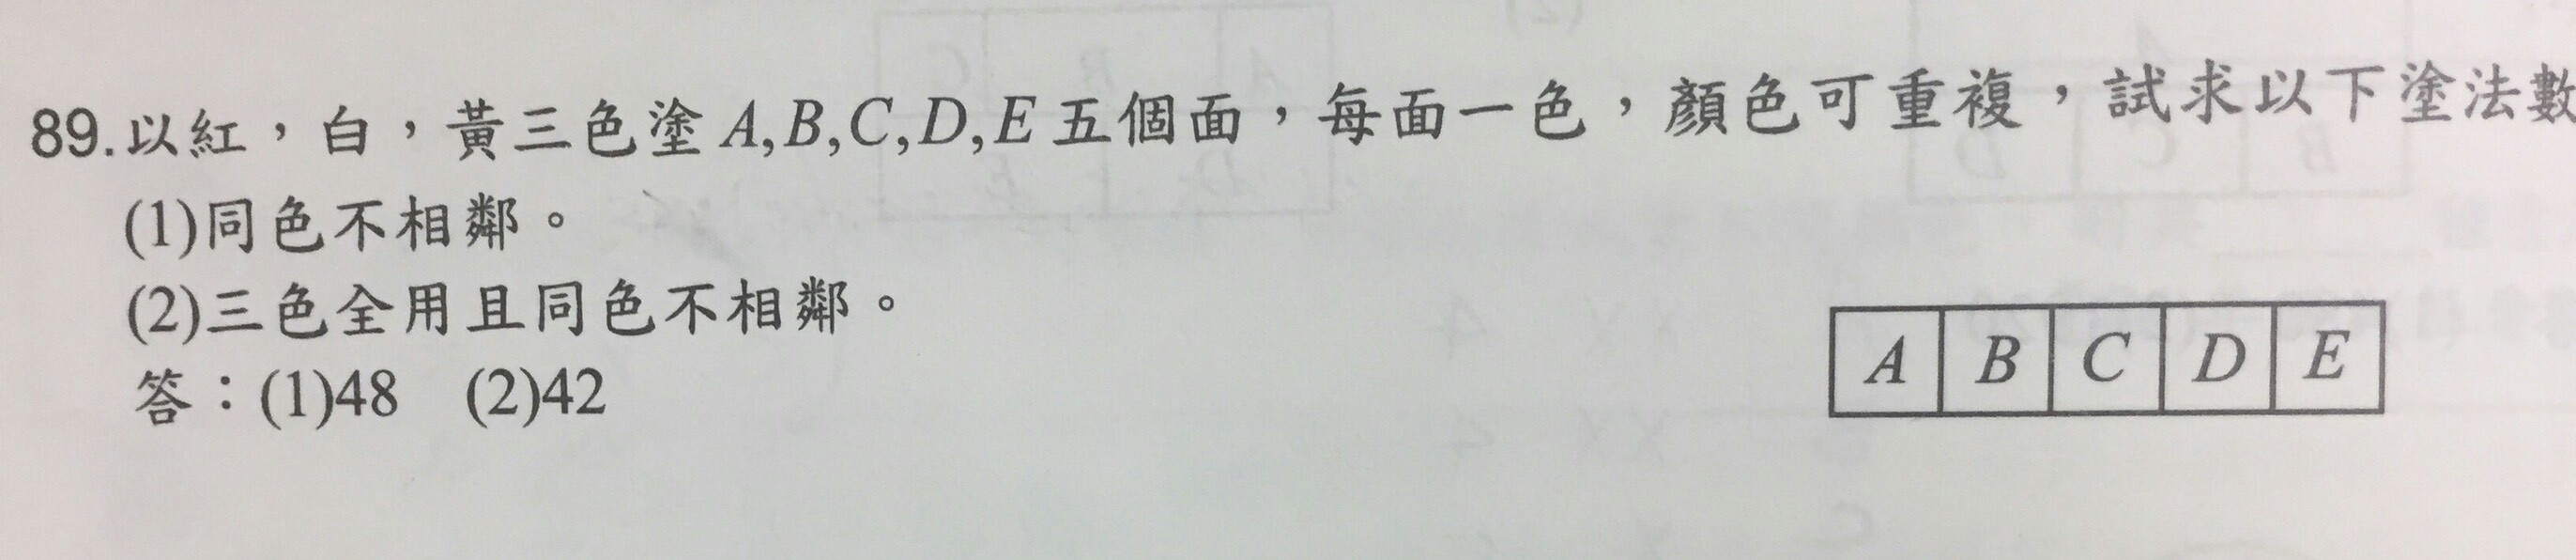 89.以紅，白，黃三色塗 A,B,C,D,E 五個面，每面一色，顏色可重複，試求以下塗法數
(1)同色不相鄰。
(2)三色全用且同色不相鄰。
答：(1)48 (2)42
A B C D E